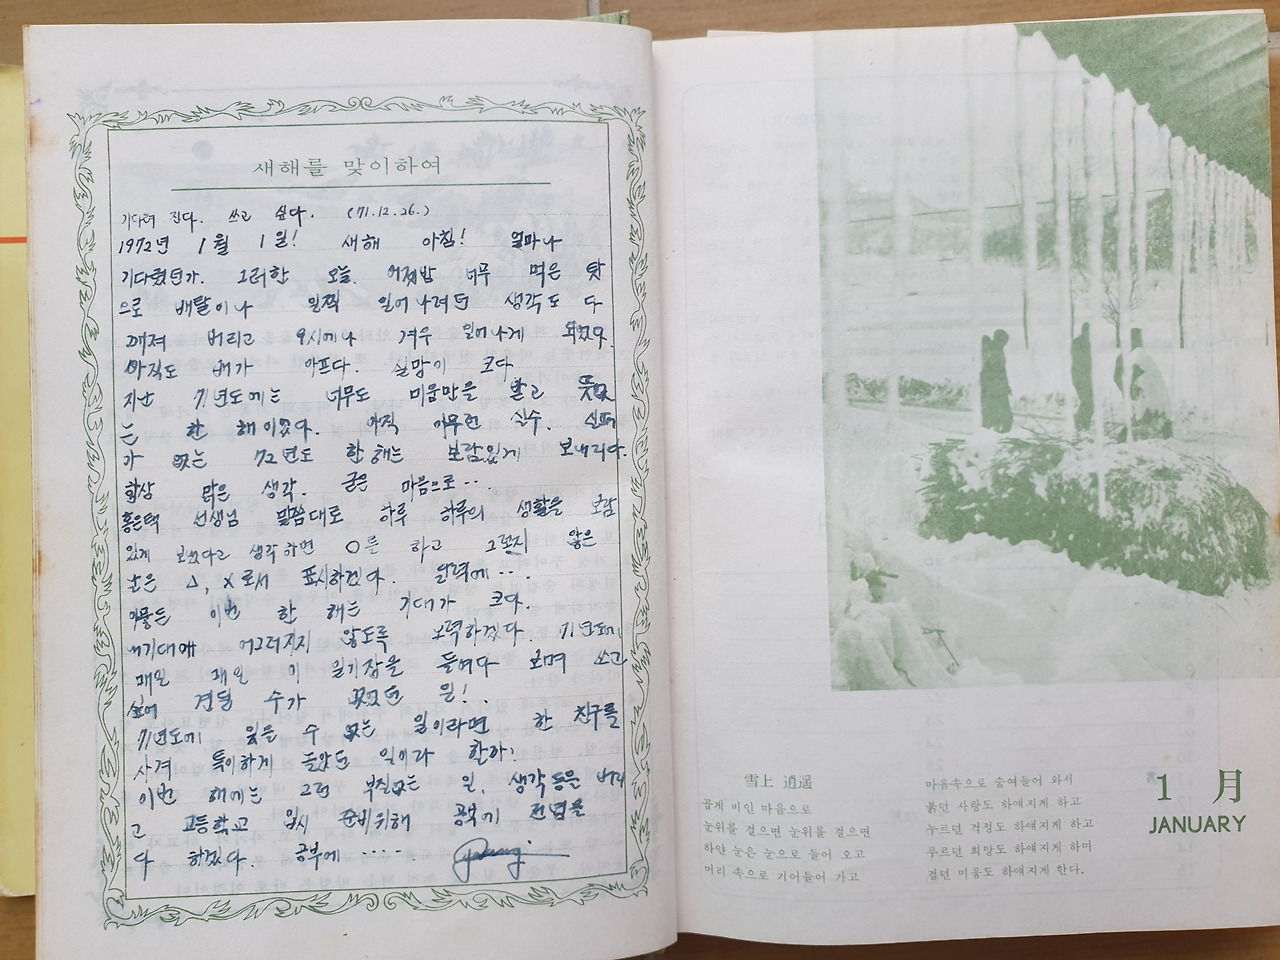 새해를 맞이하여
기다려 진다. 쓰고 싶다. (71.12.26.)
1972년 1월 1일! 새해 아침! 얼마나
기다렸던가. 그러한 오늘. 어젯밤 너무 먹은 탓
으로 배탈이나 일찍 일어나려던 생각도 다
깨져 버리고 9시에나 겨우 일어나게 되었다.
아직도 배가 아프다. 실망이 크다.
지난 71년도에는 너무도 미움만을 받고 뜻없
는 한 해이었다. 아직 아무런 실수. 실패
가 없는 72년도 한 해는 보람있게 보내리다.
항상 맑은 생각. 굳은 마음으로...
홍은택 선생님 말씀대로 하루 하루의 생활을 보람
있게 보냈다고 생각하면 ○를 하고 그렇지 않은
날은 △, X로서 표시하겠다. 달력에...
아뭏튼 이번 한 해는 기대가 크다.
내기대에 어그러지지 않도록 노력하겠다. 71년도에
매일 매일 이 일기장을 들여다 보며 쓰고
싶어 견딜 수가 없었던 일!
71년도에 잊을 수 없는 일이라면 한 친구를
사겨 특이하게 놀았던 일이라 할까!
이번 해에는 그런 부질없는 일, 생각 등은 버리
고 고등학교 입시 준비위해 공부에 전념을
다 하겠다. 공부에 .....
雪上 逍遥
곱게 비인 마음으로
눈위를 걸으면 눈위를 걸으면
하얀 눈은 눈으로 들어 오고
머리 속으로 기어들어 가고
마음속으로 숨여들어 와서
붉던 사랑도 하얘지게 하고
누르던 걱정도 하얘지게 하고
푸르던 희망도 하얘지게 하며
검던 미움도 하얘지게 한다.
1 月
JANUARY